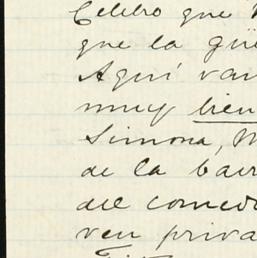 Celebro que
que la güe
Aquí van
muy bien
Simona, M
de la barr
del comedo
ven priva